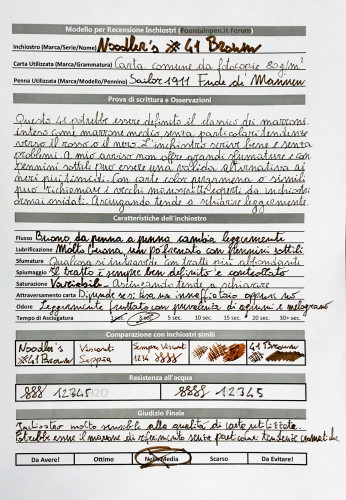 Modello per Recensione Inchiostri (Fountainpen.it Forum)
Inchiostro (Marca/Serie/Nome) Noodler's #41 Brown
Carta Utilizzata (Marca/Grammatura) Carta comune da fotocopie 80g/m²
Penna Utilizzata (Marca/Modello/Pennino) Sailor 1911 Fude de Mannen
Prova di scrittura e Osservazioni
Questo 41 potrebbe essere definito il classico dei marroni
inteso come marrone medio senza particolari tendenze
verso il rosso o il nero. L'inchiostro scrive bene e senza
problemi. A mio avviso non offre grandi sfumature e con
pennini sottili può essere una valida alternativa ai
neri più timidi. Con carte color pergamena o simili
può richiamare i vecchi manoscritti coperti da inchiostri
ormai ossidati. Asciugando tende a schiarire leggermente.
Caratteristiche dell'inchiostro
Flusso Buono da penna a penna cambia leggermente
Lubrificazione Molto buona, un po' frenato con pennini sottili
Sfumature Qualcosa si intravede con tratti più abbondanti
Spiumaggio Il tratto è sempre ben definito e controllato
Saturazione Variabile - Asciugando tende a schiarire
Attraversamento carta Dipende se si usa un innaffiatoio oppure no
Odore Leggermente fruttato con prevalenza di agrumi e melograno
Tempo di Asciugatura 1 sec. 3 sec. 5 sec. 10 sec. 15 sec. 20 sec. 30+ sec.
Comparazione con Inchiostri simili
Noodler's #41 Brown
Visconti Seppia
Sempre Visconti 1234
41 Brown
Resistenza all'acqua
12345 H2O
12345
Giudizio Finale
Inchiostro molto sensibile alla qualità di carta utilizzata.
Potrebbe essere il marrone di riferimento senza particolari tendenze cromatiche
Da Avere! Ottimo Nella Media Scarso Da Evitare!